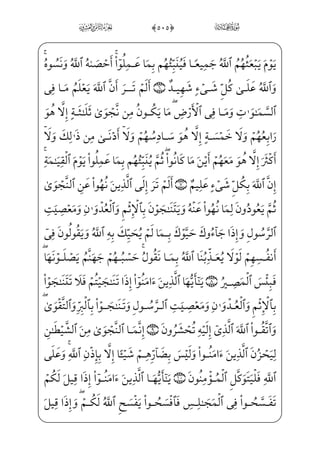 ﴿٥٠٥﴾
يَوْمَ يَبْعَثُهُمُ ٱللَّهُ جَمِيعًا فَيُنَبِّئُهُم بِمَا عَمِلُوٓا۟ ۚ أَحْصَىٰهُ ٱللَّهُ وَنَسُوهُ ۚ
وَٱللَّهُ عَلَىٰ كُلِّ شَىْءٍ شَهِيدٌ ۝ أَلَمْ تَرَ أَنَّ ٱللَّهَ يَعْلَمُ مَا فِى
ٱلسَّمَٰوَٰتِ وَمَا فِى ٱلْأَرْضِ ۖ مَا يَكُونُ مِن نَّجْوَىٰ ثَلَٰثَةٍ إِلَّا هُوَ
رَابِعُهُمْ وَلَا خَمْسَةٍ إِلَّا هُوَ سَادِسُهُمْ وَلَآ أَدْنَىٰ مِن ذَٰلِكَ وَلَآ
أَكْثَرَ إِلَّا هُوَ مَعَهُمْ أَيْنَ مَا كَانُوا۟ ۖ ثُمَّ يُنَبِّئُهُم بِمَا عَمِلُوا۟ يَوْمَ ٱلْقِيَٰمَةِ ۚ
إِنَّ ٱللَّهَ بِكُلِّ شَىْءٍ عَلِيمٌ ۝ أَلَمْ تَرَ إِلَى ٱلَّذِينَ نُهُوا۟ عَنِ ٱلنَّجْوَىٰ
ثُمَّ يَعُودُونَ لِمَا نُهُوا۟ عَنْهُ وَيَتَنَٰجَوْنَ بِٱلْإِثْمِ وَٱلْعُدْوَٰنِ وَمَعْصِيَتِ
ٱلرَّسُولِ وَإِذَا جَآءُوكَ حَيَّوْكَ بِمَا لَمْ يُحَيِّكَ بِهِ ٱللَّهُ وَيَقُولُونَ فِىٓ
أَنفُسِهِمْ لَوْلَا يُعَذِّبُنَا ٱللَّهُ بِمَا نَقُولُ ۚ حَسْبُهُمْ جَهَنَّمُ يَصْلَوْنَهَا ۖ
فَبِئْسَ ٱلْمَصِيرُ ۝ يَٰٓأَيُّهَا ٱلَّذِينَ ءَامَنُوٓا۟ إِذَا تَنَٰجَيْتُمْ فَلَا تَتَنَٰجَوْا۟
بِٱلْإِثْمِ وَٱلْعُدْوَٰنِ وَمَعْصِيَتِ ٱلرَّسُولِ وَتَنَٰجَوْا۟ بِٱلْبِرِّ وَٱلتَّقْوَىٰ ۖ
وَٱتَّقُوا۟ ٱللَّهَ ٱلَّذِىٓ إِلَيْهِ تُحْشَرُونَ ۝ إِنَّمَا ٱلنَّجْوَىٰ مِنَ ٱلشَّيْطَٰنِ
لِيَحْزُنَ ٱلَّذِينَ ءَامَنُوا۟ وَلَيْسَ بِضَآرِّهِمْ شَيْـًٔا إِلَّا بِإِذْنِ ٱللَّهِ ۚ وَعَلَى
ٱللَّهِ فَلْيَتَوَكَّلِ ٱلْمُؤْمِنُونَ ۝ يَٰٓأَيُّهَا ٱلَّذِينَ ءَامَنُوٓا۟ إِذَا قِيلَ لَكُمْ
تَفَسَّحُوا۟ فِى ٱلْمَجَٰلِسِ فَٱفْسَحُوا۟ يَفْسَحِ ٱللَّهُ لَكُمْ ۖ وَإِذَا قِيلَ